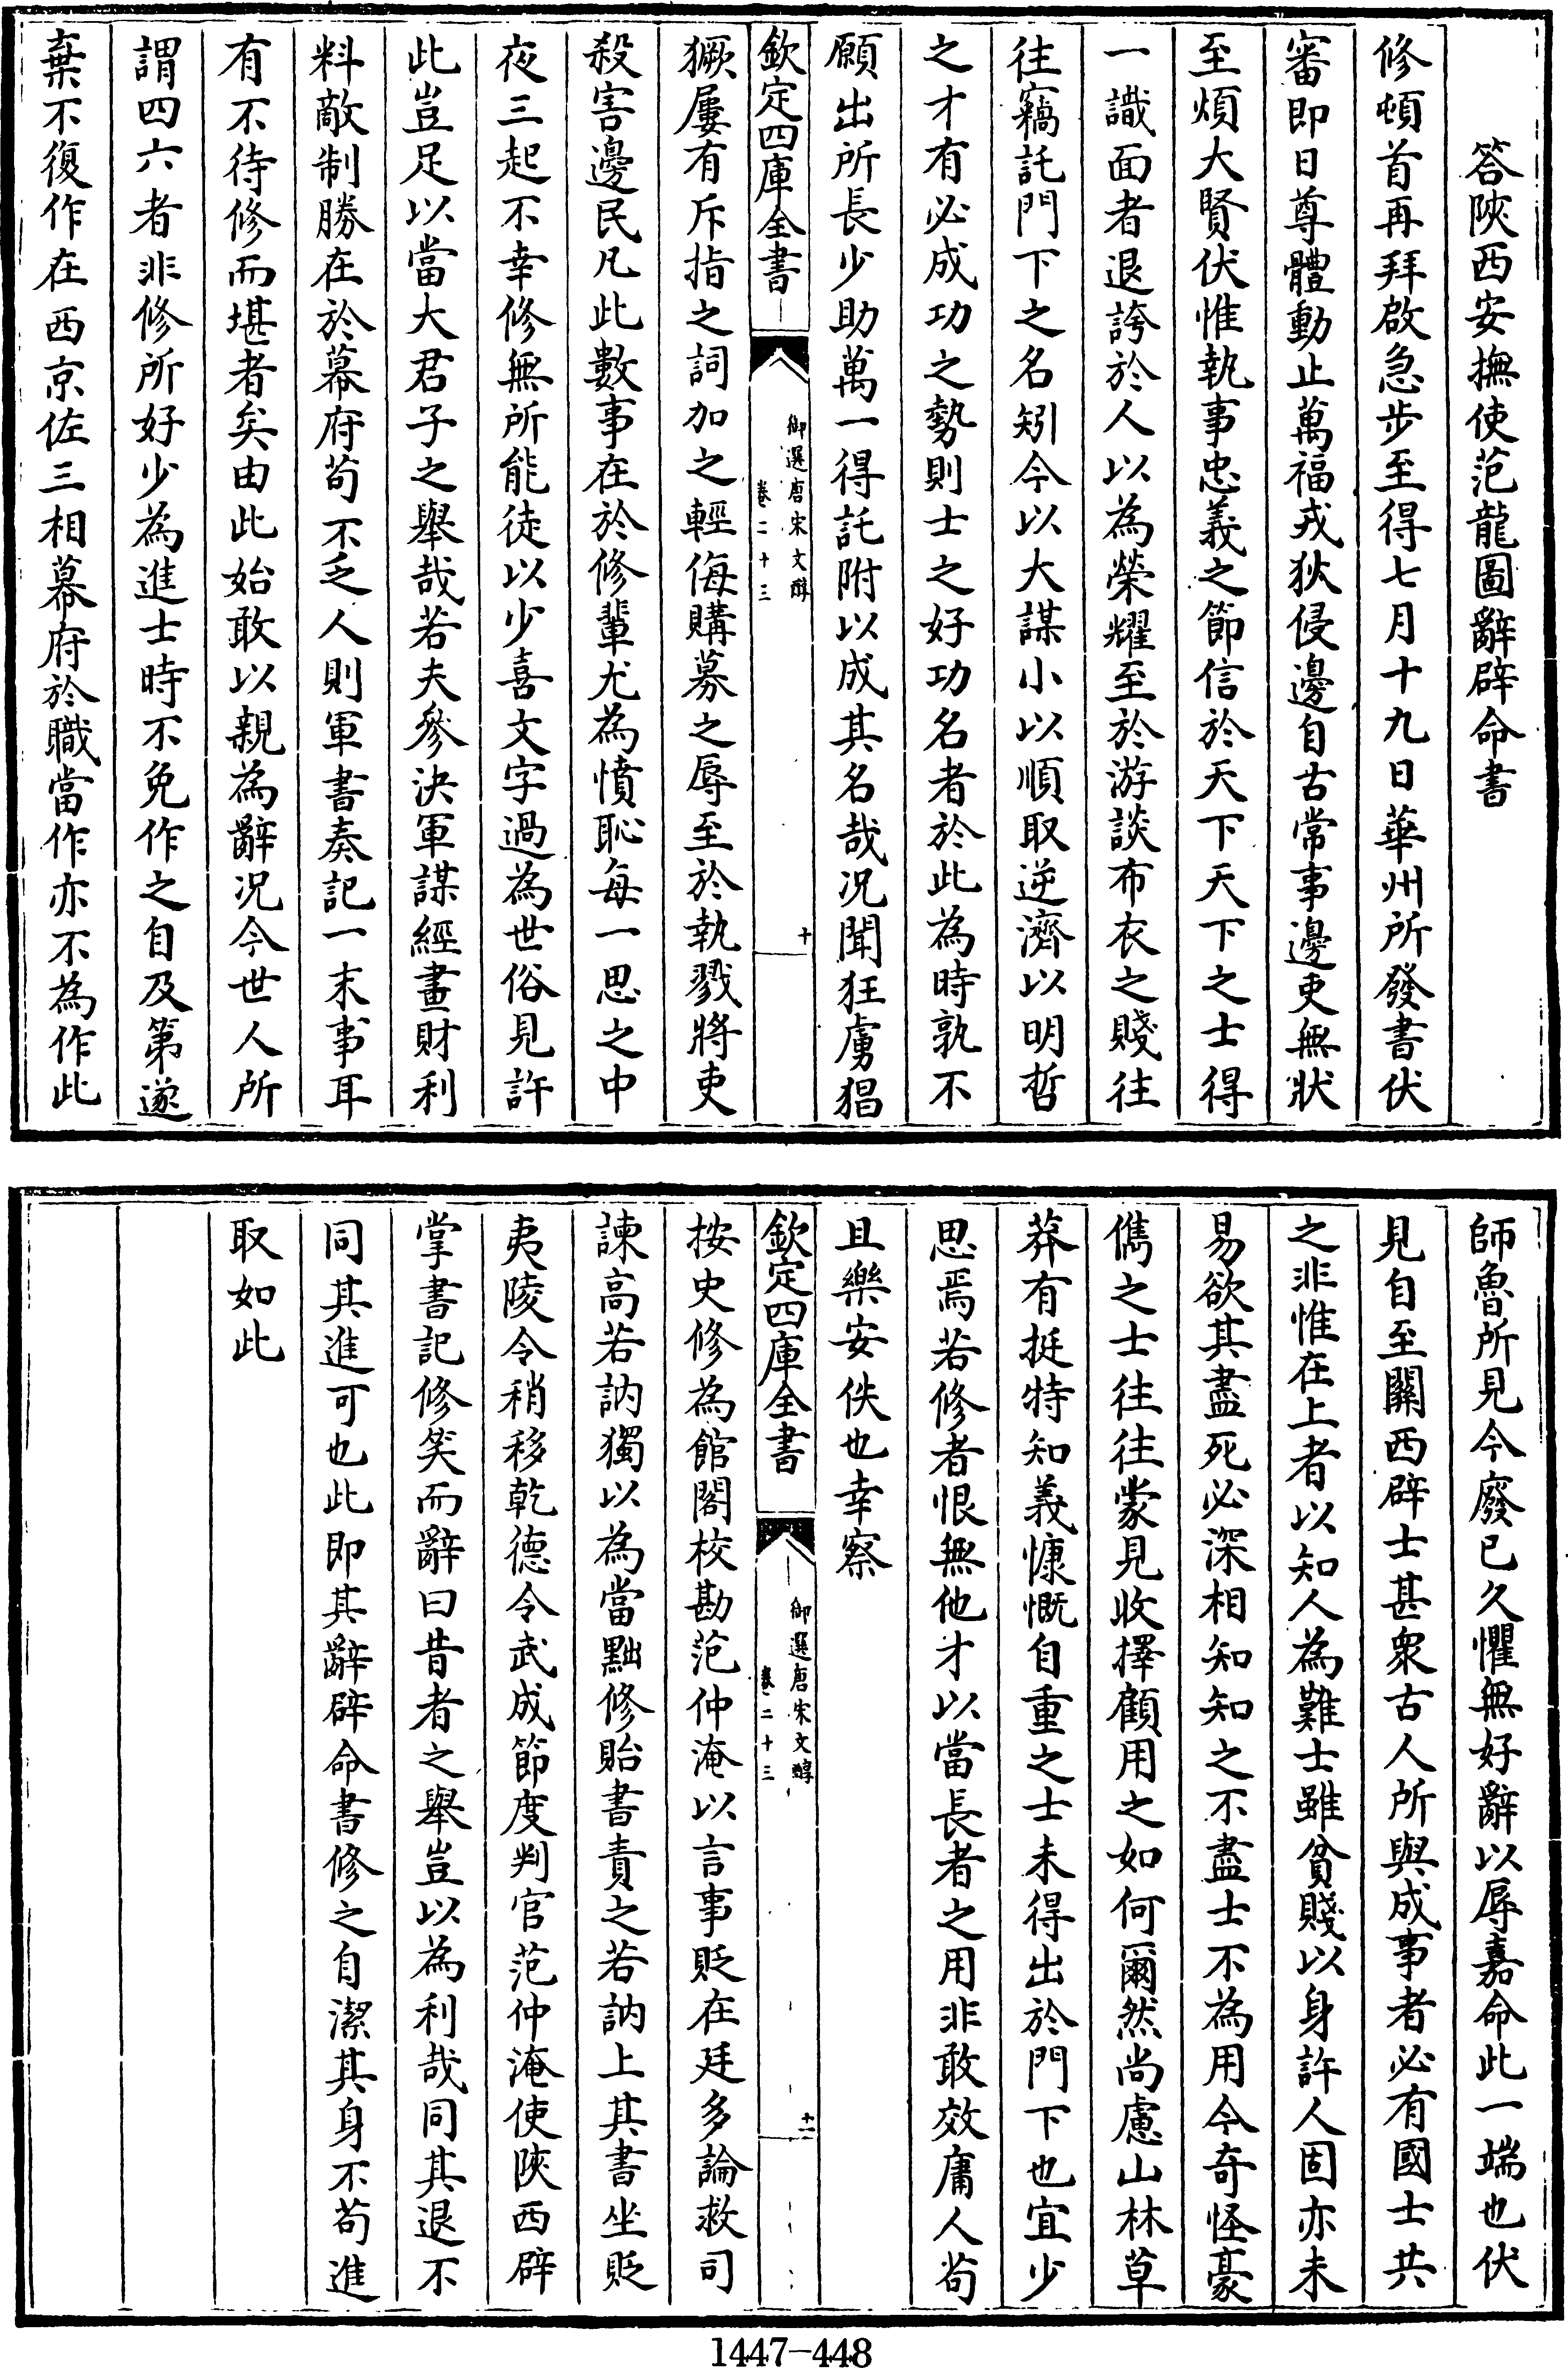 答陝西安撫使范龍圖辭辟命書
修頓首再拜啟急步至得七月十九日華州所發書伏
審即日尊體動止萬福戎狄侵邊自古常事邊吏無狀
至煩大賢伏惟執事忠義之節信於天下天下之士得
一識面者退誇於人以為榮耀至於游談布衣之賤往
往竊託門下之名矧今以大謀小以順取逆濟以明哲
之才有必成功之勢則士之好功名者於此為時孰不
願出所長少助萬一得託附以成其名哉况聞狂虜猖
欽定四庫全書
御選唐宋文醇
卷二十三
十
獗屢有斥指之詞加之輕侮購募之辱至於執戮將吏
殺害邊民凡此數事在於修輩尤為憤恥每一思之中
夜三起不幸修無所能徒以少喜文字過為世俗見許
此豈足以當大君子之舉哉若夫參決軍謀經畫財利
料敵制勝在於幕府苟不乏人則軍書奏記一末事耳
有不待修而堪者矣由此始敢以親為辭况今世人所
謂四六者非修所好少為進士時不免作之自及第遂
棄不復作在西京佐三相幕府於職當作亦不為作此
師魯所見今廢已久懼無好辭以辱嘉命此一端也伏
見自至關西辟士甚衆古人所與成事者必有國士共
之非惟在上者以知人為難士雖貧賤以身許人固亦未
易欲其盡死必深相知知之不盡士不為用今奇怪豪
儁之士往往蒙見收擇顧用之如何爾然尚慮山林草
莽有挺特知義慷慨自重之士未得出於門下也宜少
思焉若修者恨無他才以當長者之用非敢效庸人苟
且樂安佚也幸察
欽定四庫全書
御選唐宋文醇
卷二十三
十一
按史修為館閣校勘范仲淹以言事貶在廷多論救司
諫高若訥獨以為當黜修貽書責之若訥上其書坐貶
夷陵令稍移乾德令武成節度判官范仲淹使陝西辟
掌書記修笑而辭曰昔者之舉豈以為利哉同其退不
同其進可也此即其辭辟命書修之自潔其身不苟進
取如此
1447-448